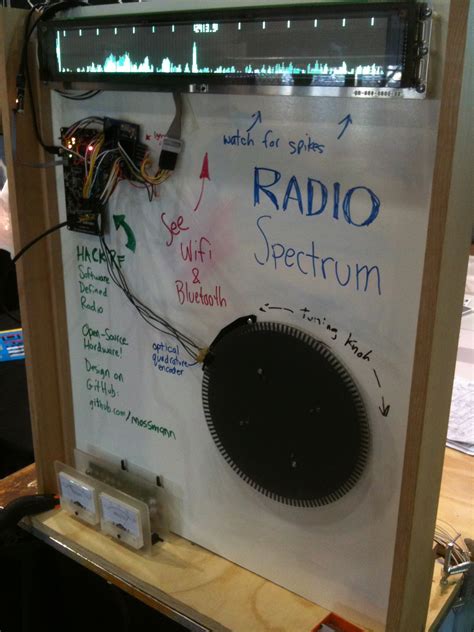 2413.9
watch for spikes
RADIO
Spectrum
See
Wifi
&
Bluetooth
HACKRF
Software
Defined
Radio
Open-Source
Hardware!
Design on
GitHub:
github.com/mossmann
optical
quadrature
encoder
tuning knob